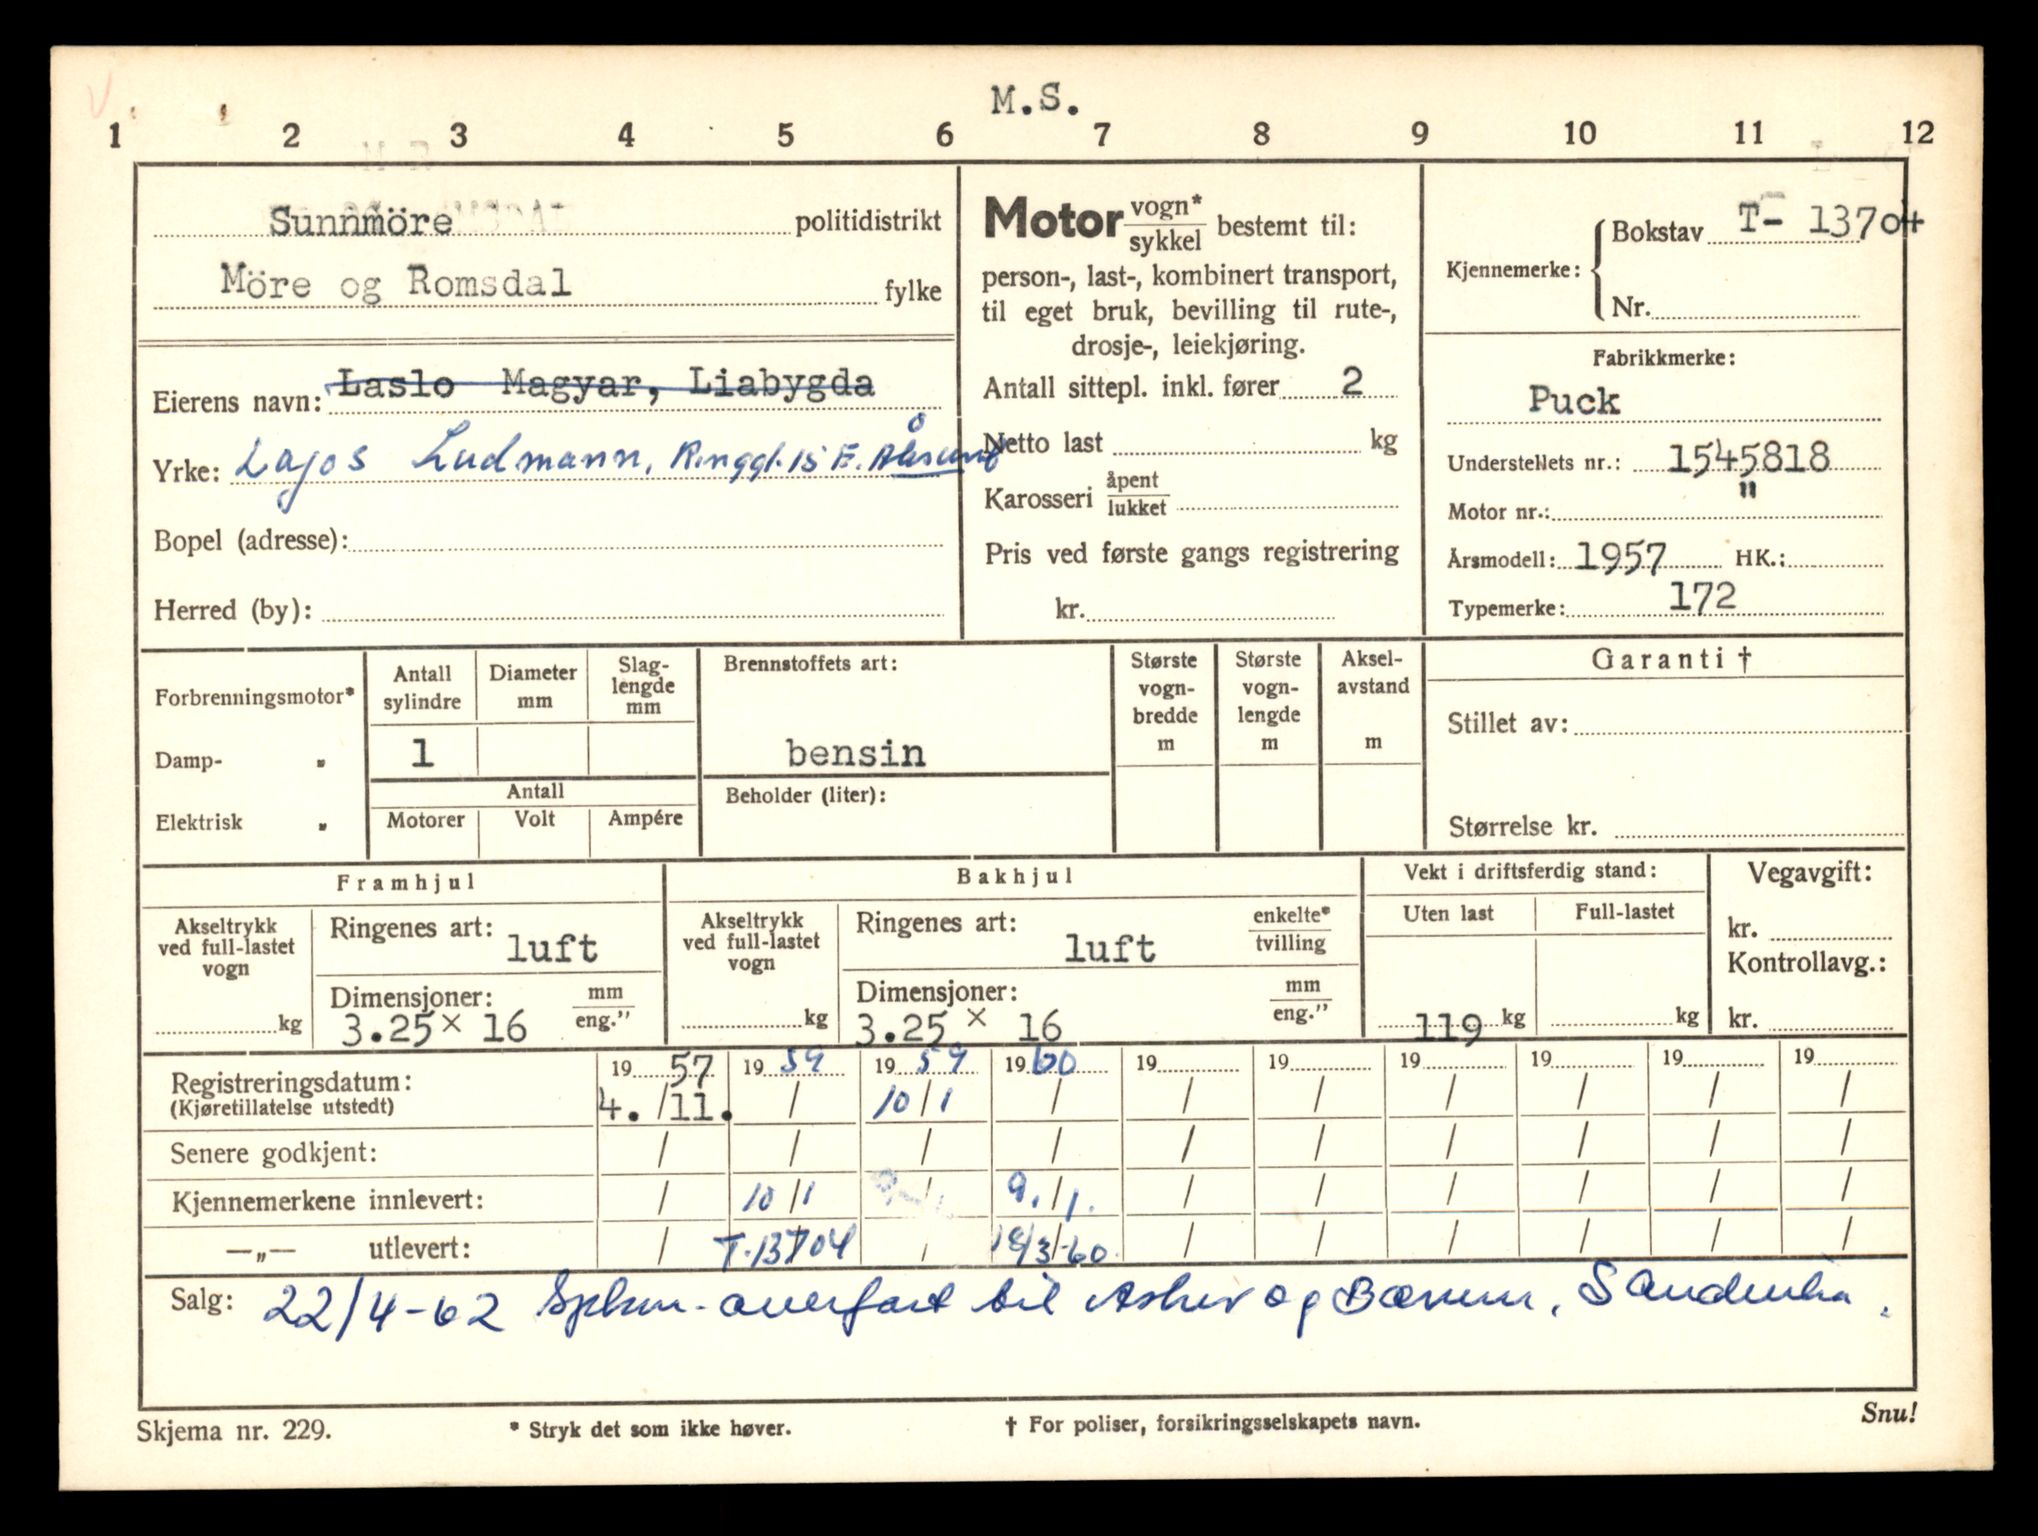 M.S.
1 2 3 4 5 6 7 8 9 10 11 12
Sunnmöre politidistrikt
Möre og Romsdal fylke
Eierens navn: Laslo Magyar, Liabygda
Yrke: Lajos Ludmann, Ringgt. 15 E. Ålesund
Bopel (adresse):
Herred (by):
Motor vogn*/sykkel bestemt til:
person-, last-, kombinert transport,
til eget bruk, bevilling til rute-,
drosje-, leiekjøring.
Antall sittepl. inkl. fører 2
Netto last kg
Karosseri åpent/lukket
Pris ved første gangs registrering
kr.
Kjennemerke: Bokstav T- 13704
Nr.
Fabrikkmerke:
Puck
Understellets nr.: 1545818
Motor nr.: "
Årsmodell: 1957 HK.:
Typemerke: 172
Forbrenningsmotor*
Damp- "
Elektrisk "
Antall sylindre
1
Diameter mm
Slag-
lengde
mm
Antall
Motorer Volt Ampére
Brennstoffets art:
bensin
Beholder (liter):
Største
vogn-
bredde
m
Største
vogn-
lengde
m
Aksel-
avstand
m
Garanti †
Stillet av:
Størrelse kr.
Framhjul
Akseltrykk
ved full-lastet
vogn
kg
Ringenes art: luft
Dimensjoner: mm/eng."
3.25 × 16
Bakhjul
Akseltrykk
ved full-lastet
vogn
kg
Ringenes art: luft enkelte*/tvilling
Dimensjoner: mm/eng."
3.25 × 16
Vekt i driftsferdig stand:
Uten last Full-lastet
119 kg kg
Vegavgift:
kr.
Kontrollavg.:
kr.
19 57 19 59 19 59 19 60 19 19 19 19 19 19
Registreringsdatum:
(Kjøretillatelse utstedt) 4. / 11. / 10 / 1 / / / / / / /
Senere godkjent: / / / / / / / / / /
Kjennemerkene innlevert: / 10 / 1 / 9. / 1. / / / / / /
—„— utlevert: / T-13704 / 18/3-60. / / / / / /
Salg: 22/4-62 overført til Asker og Bærum, Sandvika.
Skjema nr. 229.
* Stryk det som ikke høver.
† For poliser, forsikringsselskapets navn.
Snu!